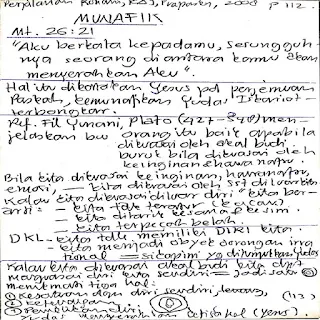 Perjalanan Rohani, 2008 p 112.
MUNAFIK
Mt. 26:21
"Aku berkata kepadamu, sesungguh-
nya seorang di antara kamu akan
menyerahkan Aku".
Hal itu dikatakan Yesus pd perjamuan
Paskah, kemunafikan Yudas Iskariot
terbongkar.
Ref. Fil Yunani, Plato (427-347) men-
jelaskan bw orang itu baik apabila
dikuasai oleh akal budi
buruk bila dikuasai oleh
keinginan & hawa nafsu.
Bila kita dikuasai keinginan, hawa nafsu,
emosi, - kita dikuasai oleh sst di luar kita
Kalau kita dikuasai di luar diri kita ber-
arti: - kita tak teratur (kacau)
- kita ditarik kesana kesini
- kita terpecah belah.
DKL - kita tdk memiliki DIRI kita.
- kita menjadi obyek dorongan irra
tional =
Kalau kita dikuasai akal budi kita dpt
menguasai diri kita sendiri
menikmati tiga hal:
1) Kesatuan dgn diri sendiri, tenang,
2)
3) (113)
(Yesus).